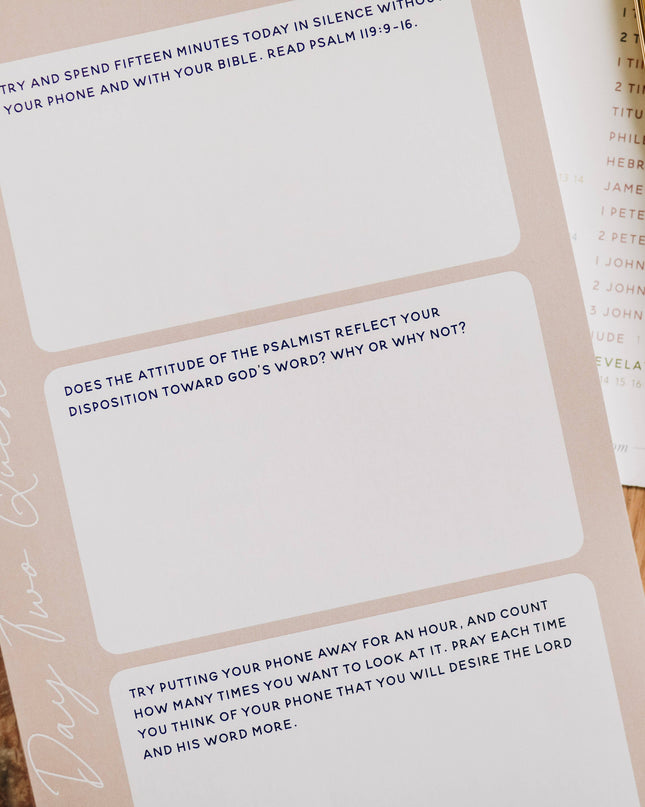 TRY AND SPEND FIFTEEN MINUTES TODAY IN SILENCE WITHOUT
YOUR PHONE AND WITH YOUR BIBLE. READ PSALM 119:9-16.
DOES THE ATTITUDE OF THE PSALMIST REFLECT YOUR
DISPOSITION TOWARD GOD'S WORD? WHY OR WHY NOT?
TRY PUTTING YOUR PHONE AWAY FOR AN HOUR, AND COUNT
HOW MANY TIMES YOU WANT TO LOOK AT IT. PRAY EACH TIME
YOU THINK OF YOUR PHONE THAT YOU WILL DESIRE THE LORD
AND HIS WORD MORE.
Day Two
1 TI
2 TI
TITU
PHIL
HEBR
13 14
JAME
1 PETE
2 PETE
1 JOHN
2 JOHN
3 JOHN
JUDE
EVELA
14 15 16
om